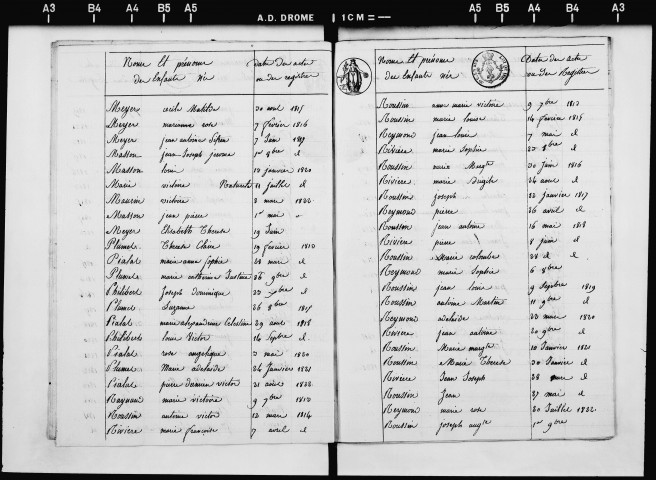 A3 B4 A4 B5 A5 A.D. DROME 1 CM A5 B5 A4 B4 A3
Nome Et prénome Date des actes
des Enfants née ou des registres
Meyer cecile 20 aout 1815
Meyer marianne rose 7 février 1816
Meyer jean antoine 7 Juin 1819
Masson jean joseph 1er 8bre d
Masson louis 10 janvier 1820
Marie victoire 11 juillet d
Maurin victoire 2 mars 1822
Masson jean pierre 1er mai
Meyer Elisabeth Therese 19 Juin
Plumel Therese Claire 19 février 1810
Pialat marie anne Sophie 28 mars d
Plumel marie catherine 26 9bre d
Philibert Joseph dominique d
Plumel Suzanne 26 8bre 1815
Pialat marie alexandrine Celestine 29 aout 1818
Philibert louis Victor 14 Septbre d
Pialat rose angelique 2 mai 1820
Plumel Marie adelaide 24 Janvier 1821
Pialat pierre victor 21 aout 1822
Raymond marie victoire 9 7bre 1812
Roussin antoine victor 12 mars 1814
Rivière marie françoise 7 avril d
Nome et prénome Date des actes
des Enfants née ou des Registres
Roussin anne marie victoire 9 7bre 1813
Roussin marie louise 14 février 1815
Reymond jean louis 7 mai d
Rivière marie Sophie d
Roussin marie Margte 30 Juin 1816
Rivière marie 24 aout d
Roussin joseph 22 janvier 1817
Reymond pierre 26 avril d
Roussin jean antoine 16 mai 1818
Rivière pierre 8 juin d
Roussin Marie colombe 28 d d
Reymond marie Sophie 6 8bre
Roussin jean louis 9 Septbre 1819
Roussin antoine Martin 11 9bre d
Reymond adelaide 22 mars 1820
Rivière jean antoine 20 9bre d
Roussin Marie margte 10 Janvier 1821
Roussin Marie Therese 30 Janvier d
Rivière Jean Joseph 28 d
Roussin Jean 27 mai d
Reymond marie rose 20 Juillet 1822
Roussin joseph augte 1er 9bre